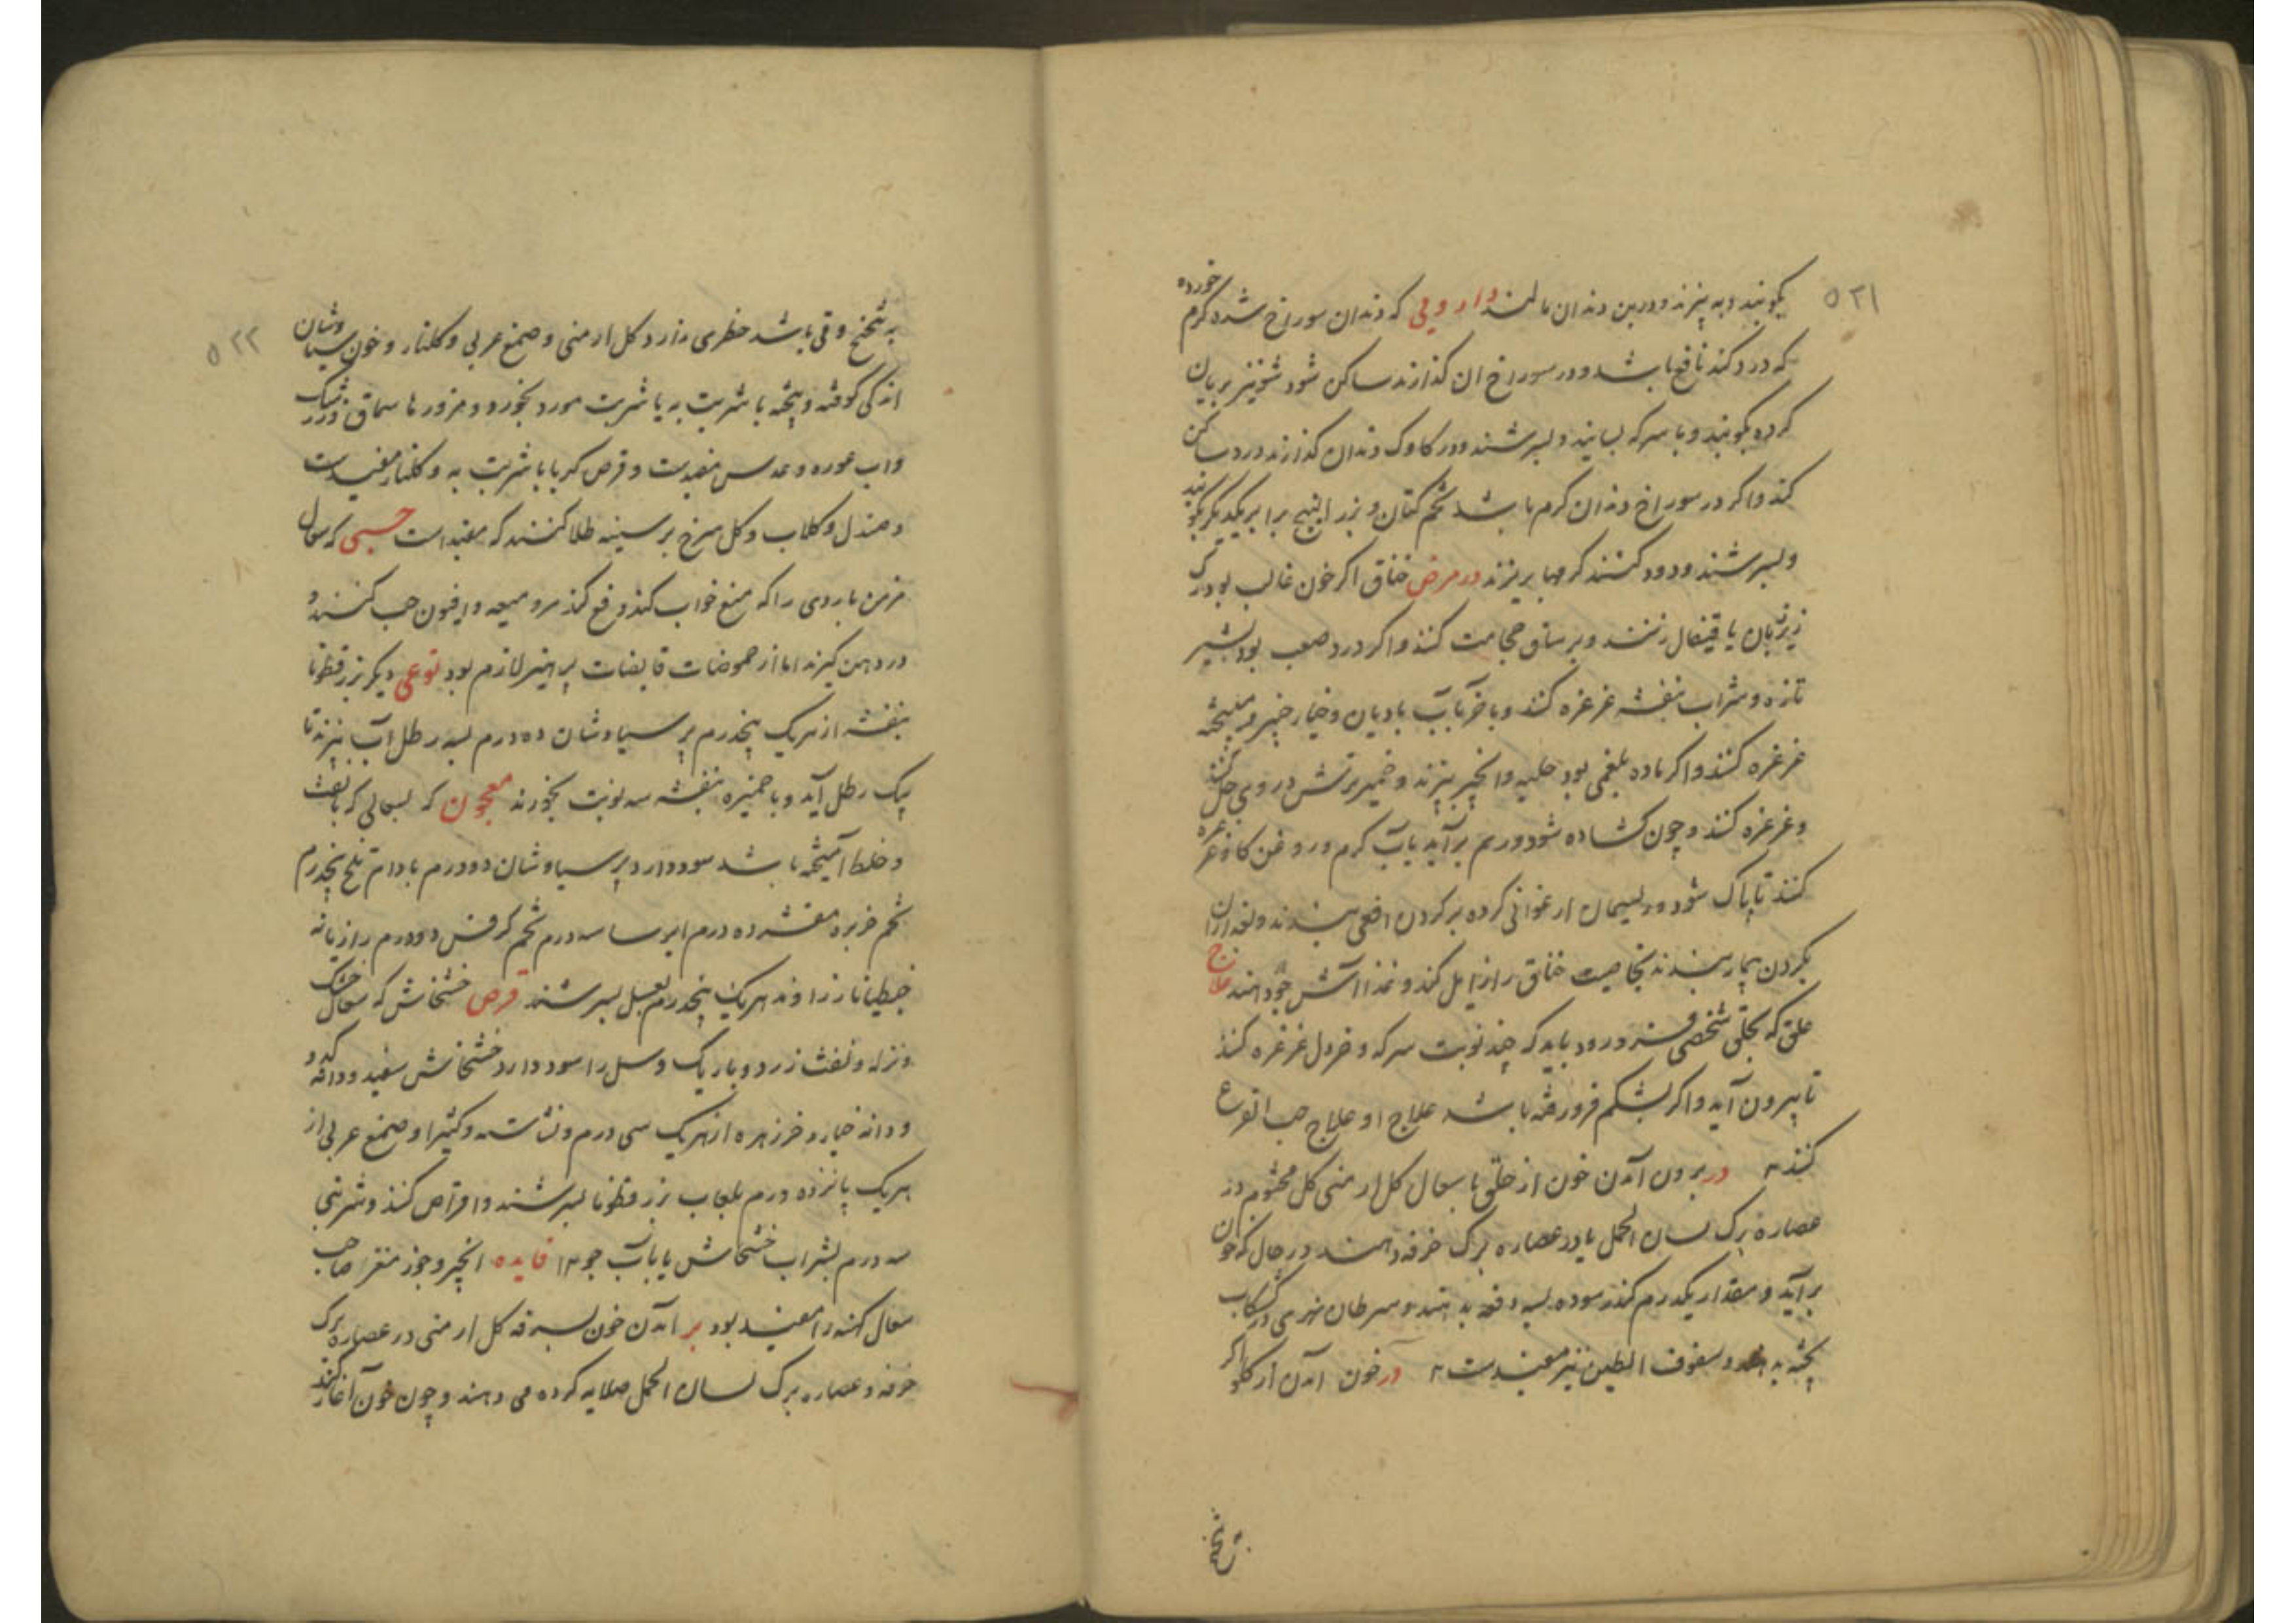 ۵۲۱
بکوبند و به پزند و در بن دندان مالند داروئی که دندان سوراخ شده کرم خورده
که درد کند نافع باشد و در سوراخ ان کذارند ساکن شود شونیز بریان
کرده بکوبند و با سرکه بسایند و بسرشند و در کاوک دندان کذارند درد ساکن
کند و اکر در سوراخ دندان کرم باشد تخم کتان و بزر البنج برابر یکدیکر بکوبند
و بسرشند و دود کنند کرمها بریزند در مرض خناق اکر خون غالب بود رک
زیر زبان یا قیفال زنند و بر ساق حجامت کنند و اکر درد صعب بود بشیر
تازه و شراب بنفشه غرغره کنند و باخر بآب بادیان و خیار چنبر و میپخته
غرغره کنند و اکر ماده بلغمی بود حلبه و انجیر بپزند و خمیر ترش در وی حل کنند
و غرغره کنند و چون کشاده شود و ریم برآید بآب کرم و روغن کاو غرغره
کنند تا پاک شود و ریسمان ارغوانی کرده بر کردن افعی بندند و بعد از ان
بکردن بیمار بندند بخاصیت خناق را زایل کند و غذا آش جو دهند علاج
علق که بحلق شخصی فرو رود باید که چند نوبت سرکه و خردل غرغره کند
تا بیرون آید و اکر بشکم فرو رفته باشد علاج او علاج حب القرع
کنند در برون آمدن خون از حلق با سعال کل ارمنی کل مختوم در
عصاره برک لسان الحمل یا در عصاره برک خرفه دهند در حال که خون
برآید و مقدار یکدرم کندر سوده بسه دفعه بدهند و سرطان نهری در کشکاب
پخته بدهند و سفوف الطین نیز مفیدست در خون امدن از کلو اکر
به تنخنح
۵۲۲
به تنخنح و قی باشد خطری ندارد کل ارمنی و صمغ عربی و کلنار و خون سیاوشان
اندکی کوفته و پخته با شربت به یا شربت مورد بخورد و مزور ها سماق و زرشک
و اب غوره و عدس مفیدست و قرص کهربا با شربت به و کلنار مفیدست
و صندل و کلاب و کل سرخ بر سینه طلا کنند که مفید است حبی که سعال
مزمن باردی را که منع خواب کند دفع کند مر و میعه و افیون حب کنند و
در دهن کیرند اما از حموضات قابضات پرهیز لازم بود نوعی دیکر بزرقطونا
بنفشه از هریک پنجدرم پرسیاوشان ده درم بسه رطل آب بپزند تا
یک رطل آید و با خمیره بنفشه سه نوبت بخورند معجون که بسعالی که با نفث
و خلط آمیخته باشد سود دارد پرسیاوشان دو درم بادام تلخ پنجدرم
تخم خربزه مقشر ده درم ایرسا سه درم تخم کرفس دو درم رازیانه
جنطیانا زراوند هریک پنجدرم بعسل بسرشند قرص خشخاش که سعال خشک
و نزله و نفث زرد و باریک و سل را سود دارد خشخاش سفید و دانه کدو
و دانه خیار و خرزهره از هریک سی درم و نشاسته و کثیرا و صمغ عربی از
هریک پانزده درم بلعاب بزرقطونا بسرشند و اقراص کنند و شربتی
سه درم بشراب خشخاش یا بآب جو فایده انجیر و جوز مغز صاحب
سعال کهنه را مفید بود بر آمدن خون بسرفه کل ارمنی در عصاره برک
خرفه و عصاره برک لسان الحمل صلایه کرده می دهند و چون خون آغاز کند